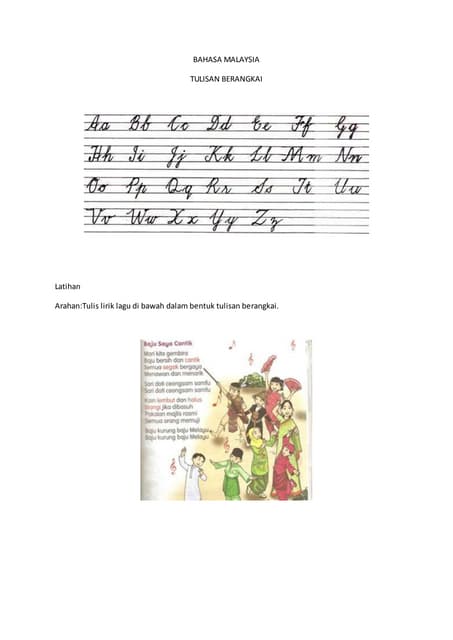 BAHASA MALAYSIA
TULISAN BERANGKAI
Aa Bb Cc Dd Ee Ff Gg
Hh Ii Jj Kk Ll Mm Nn
Oo Pp Qq Rr Ss Tt Uu
Vv Ww Xx Yy Zz
Latihan
Arahan:Tulis lirik lagu di bawah dalam bentuk tulisan berangkai.
Baju Saya Cantik
Mari kita gembira
Baju bersih dan cantik
Semua segak bergaya
Menawan dan menarik
Sari doti ceongsam samfu
Sari doti ceongsam samfu
Kain lembut dan halus
jika dibasuh
Pakaian majlis rasmi
Semua orang memuji
Baju kurung baju Melayu
Baju kurung baju Melayu